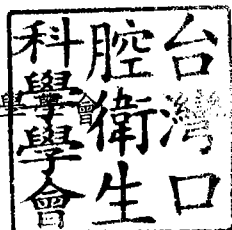 台灣口
腔衛生
科學學會